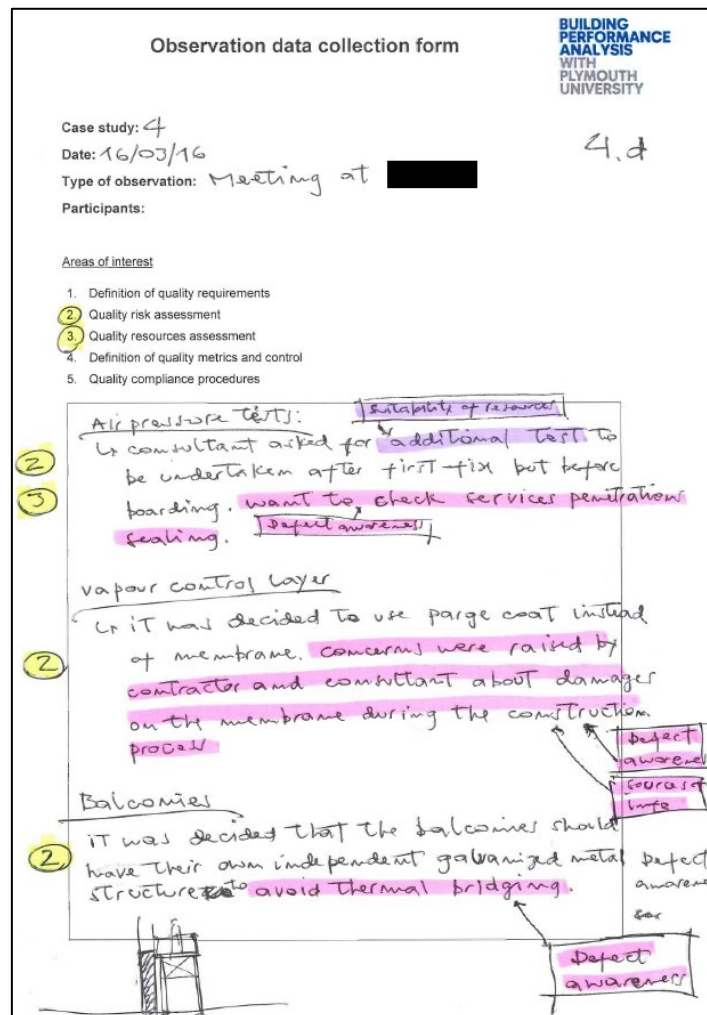 Observation data collection form
BUILDING
PERFORMANCE
ANALYSIS
WITH
PLYMOUTH
UNIVERSITY
Case study: 4
Date: 16/03/16
4.d
Type of observation: Meeting at
Participants:
Areas of interest
1. Definition of quality requirements
2. Quality risk assessment
3. Quality resources assessment
4. Definition of quality metrics and control
5. Quality compliance procedures
Suitability of resources
Air pressure tests:
2
↳ consultant asked for additional test to
be undertaken after first-fix but before
3
boarding. want to check services penetrations
sealing. Defect awareness
vapour control layer
↳ it was decided to use parge coat instead
2
of membrane. concerns were raised by
contractor and consultant about damages
on the membrane during the construction
process
Defect
awarenes
source of
info
Balconies
it was decided that the balconies should
2
have their own independent galvanized metal
structure to avoid thermal bridging.
Defect
awarene
Defect
awareness